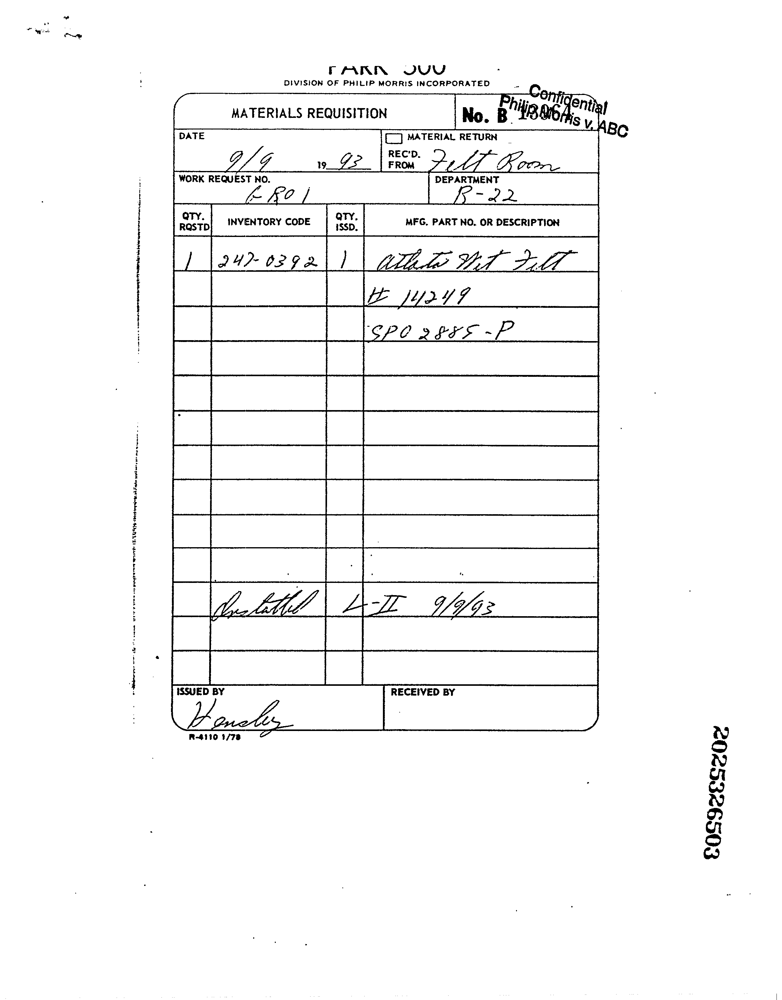 PARK 500
DIVISION OF PHILIP MORRIS INCORPORATED
Confidential
Philip Morris v. ABC
MATERIALS REQUISITION
No. B
DATE
9/9 19 93
MATERIAL RETURN
REC'D. FROM Felt Room
WORK REQUEST NO.
DEPARTMENT
R-22
QTY. RQSTD INVENTORY CODE QTY. ISSD. MFG. PART NO. OR DESCRIPTION
1 247-0392 1 Atlanta Wet Felt
# 14249
SPO 2885-P
Installed L-II 9/9/93
ISSUED BY
Hensley
RECEIVED BY
R-4110 1/78
2025326503